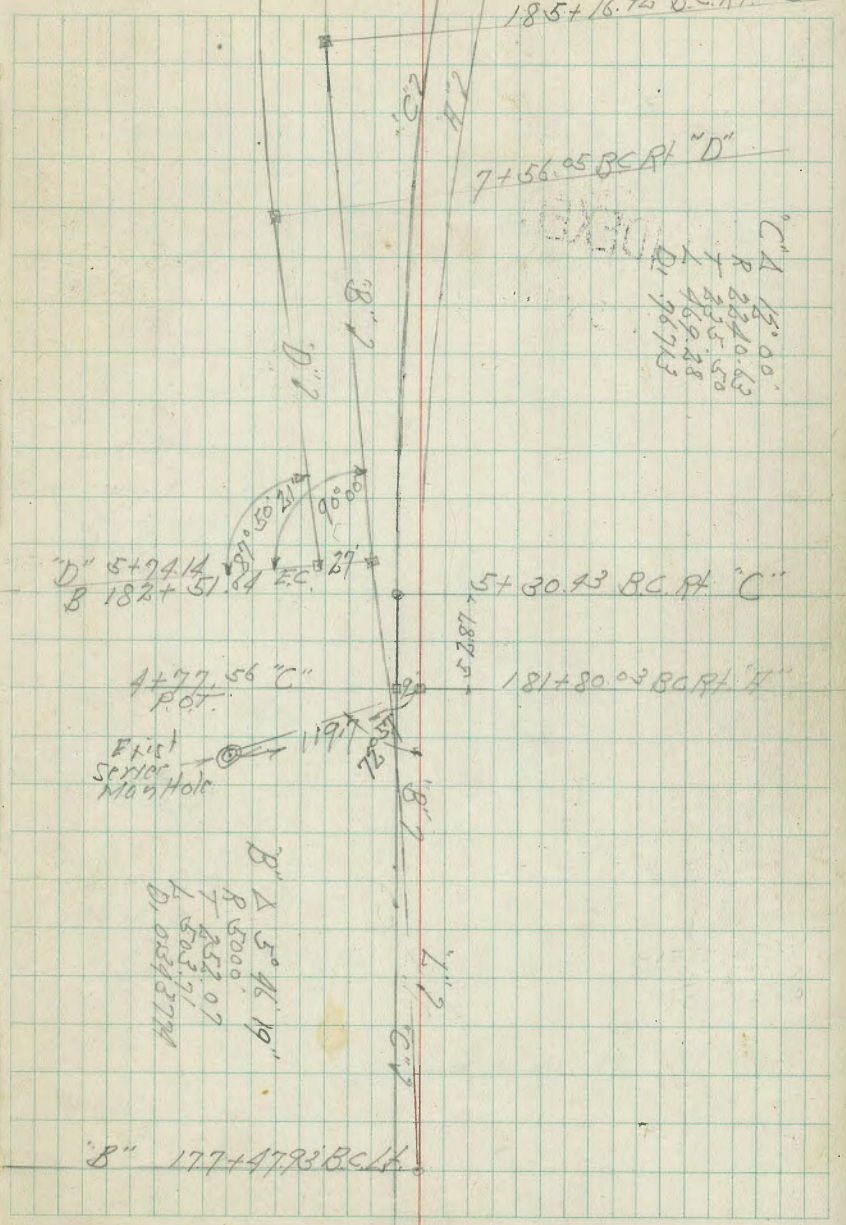 185+16.72 B.C. Rt.
"C"
"A"
7+56.05 B.C. Rt "D"
"C" Δ 12° 00'
R 2240.63
T 235.50
L 469.28
D1 .76713
"B"
"D"
87° 50' 21"
90° 00'
"D" 5+74.14
B 182+51.64 E.C. 27'
5+30.43 B.C. Rt. "C"
52.87'
4+77.56 "C"
P.O.T.
9'
181+80.03 B.C. Rt. "A"
Exist
Sewer
Man Hole
119.7
"B"
"B" Δ 5° 46' 19"
R 5000'
T 252.07
L 503.71
"L"
"C"
"B" 177+47.93 B.C. Lt.